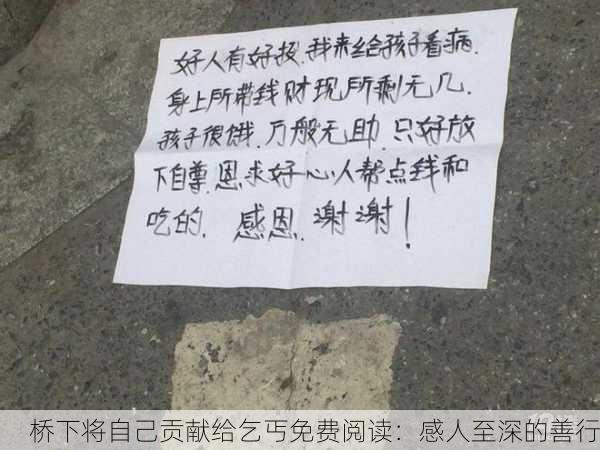 好人有好报.我来给孩子看病.
身上所带钱财现所剩无几.
孩子很饿.万般无助.只好放
下自尊.恩求好心人帮点钱和
吃的. 感恩.谢谢!
桥下将自己贡献给乞丐免费阅读：感人至深的善行